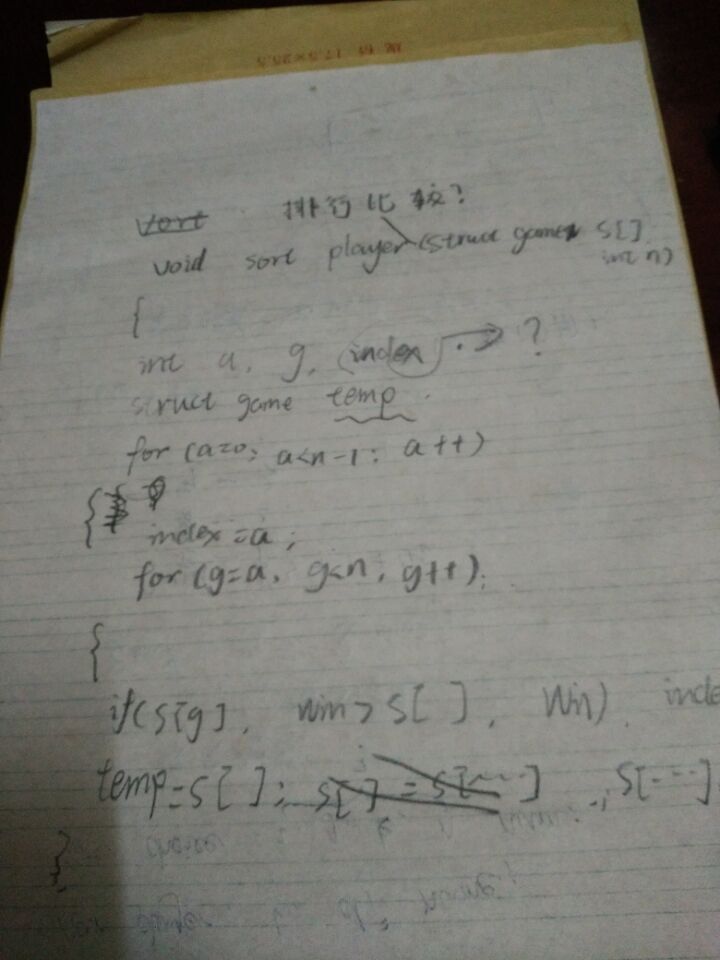 规格 17.5×25.5
vort 排行比较?
void sort player(struct game s[]
int n)
{
int a, g, (index) . → ?
struct game temp .
for (a=0; a<n-1; a++)
{
index = a;
for (g=a, g<n, g++);
{
if(s[g]. win > s[ ]. Win). inde
temp=s[ ]; s[ ] = s[....] .; s[...]
}